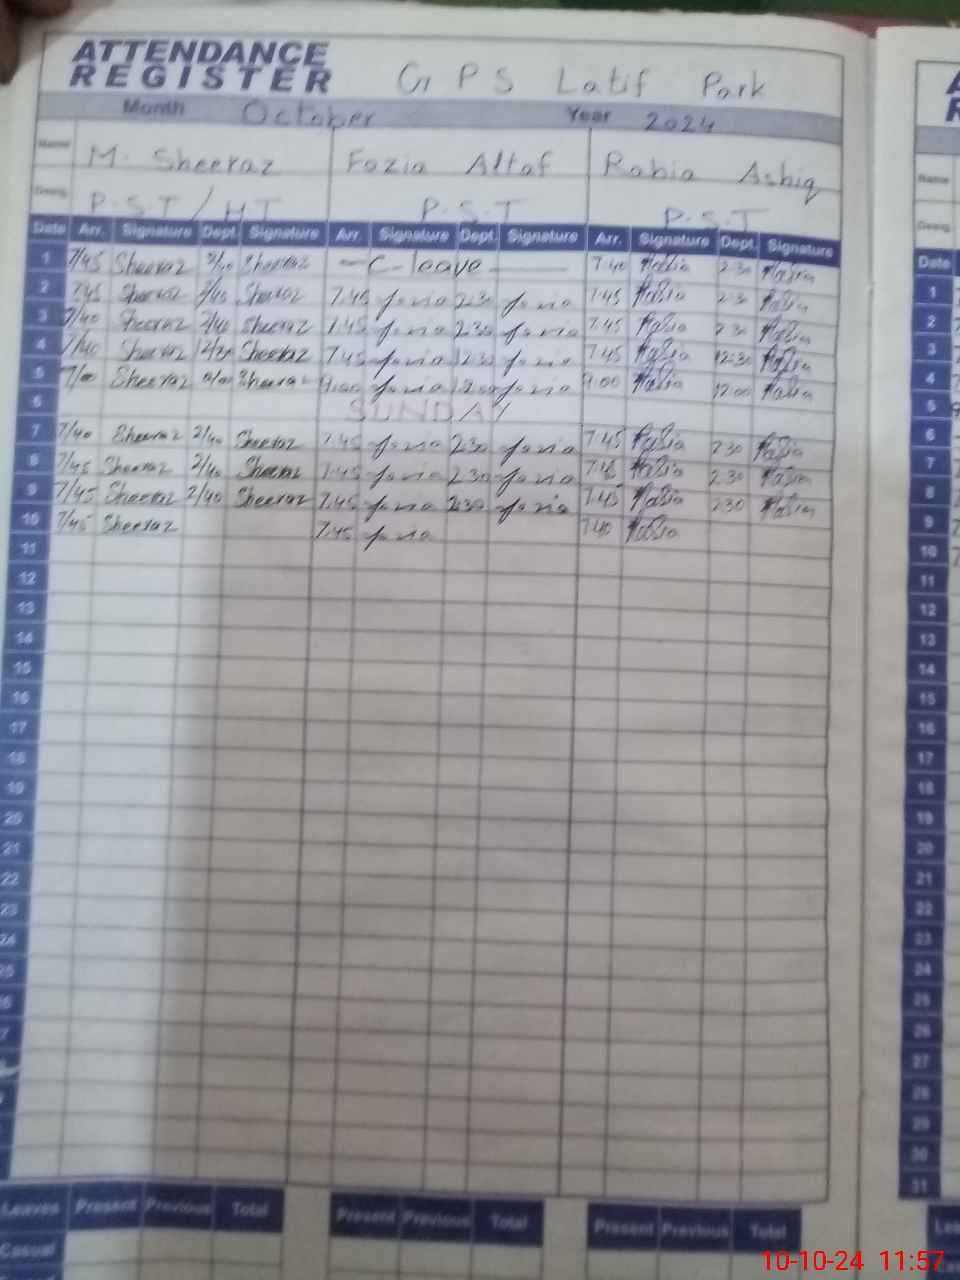 ATTENDANCE
REGISTER
G P S Latif Park
Month October Year 2024
Name M. Sheeraz Fozia Altaf Rabia Ashiq
Desig. P.S.T/HT P.S.T P.S.T
Date Arr. Signature Dept. Signature Arr. Signature Dept. Signature Arr. Signature Dept. Signature
1 7/45 Sheeraz Sheeraz C-leave 7.40 Rabia 2.30 Rabia
2 7.45 Sheeraz 2/40 Sheeraz 7.45 fozia 2.30 fozia 7.45 Rabia 2.30 Rabia
3 7/40 Sheeraz 2/40 Sheeraz 7.45 fozia 2.30 fozia 7.45 Rabia 2.30 Rabia
4 7/40 Sheeraz 12/30 Sheeraz 7.45 fozia 12.30 fozia 7.45 Rabia 12.30 Rabia
5 Sheeraz Sheeraz 9.00 fozia 12.00 fozia 9.00 Rabia 12.00 Rabia
6 SUNDAY
7 7/40 Sheeraz 2/40 Sheeraz 7.45 fozia 2.30 fozia 7.45 Rabia 2.30 Rabia
8 7/45 Sheeraz 2/40 Sheeraz 7.45 fozia 2.30 fozia 7.45 Rabia 2.30 Rabia
9 7/45 Sheeraz 2/40 Sheeraz 7.45 fozia 2.30 fozia 7.45 Rabia 2.30 Rabia
10 7/45 Sheeraz 7.45 fozia 7.40 Rabia
11
12
13
14
15
16
17
18
19
20
21
22
23
24
25
Leaves Present Previous Total Present Previous Total Present Previous Total
Casual
Name
Desig.
Date
1
2
3
4
5
6
7
8
9
10
11
12
13
14
15
16
17
18
19
20
21
22
23
24
25
26
27
28
29
30
31
10-10-24 11:57